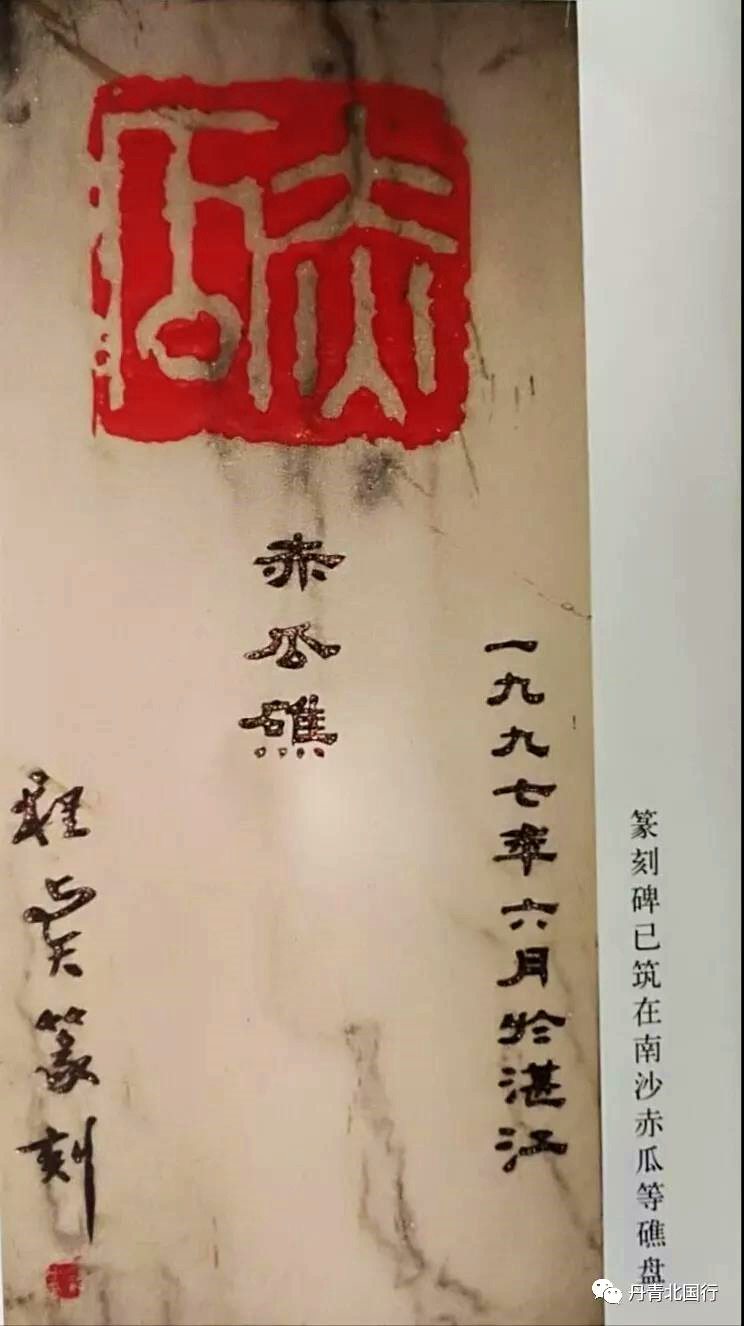 赤瓜
一九九七年六月于湛江
赤瓜礁
程与天篆刻
篆刻碑已筑在南沙赤瓜等礁盘
丹青北国行